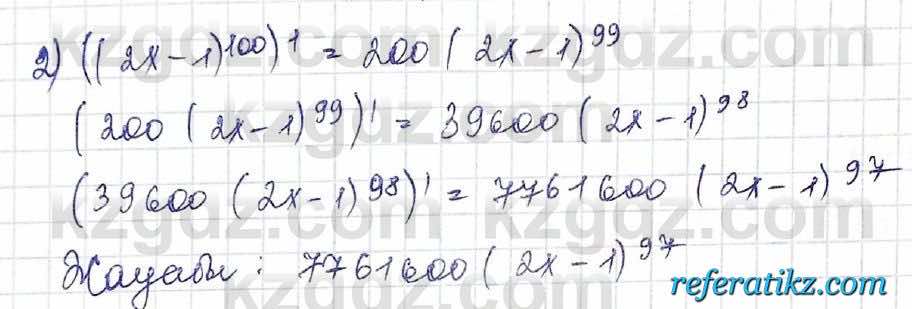 2) ((2x-1)^100)' = 200(2x-1)^99
(200(2x-1)^99)' = 39600(2x-1)^98
(39600(2x-1)^98)' = 7761600(2x-1)^97
Жауабы: 7761600(2x-1)^97
kzgdz.com
referatikz.com